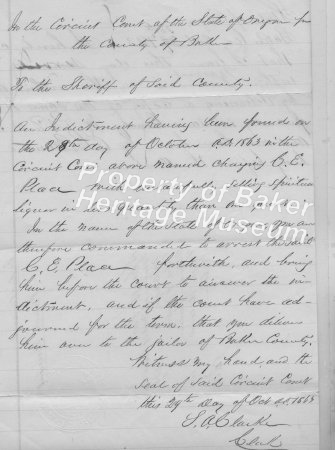 In the Circuit Court of the State of Oregon for
the County of Baker
To the Sheriff of Said County.
An Indictment having been found on
the 29th day of October A.D. 1863 in the
Circuit Court above named charging C. E.
Place with selling spiritous
liquor in less quantity than
In the name of the State of Oregon you are
therefore commanded to arrest the said
C. E. Place forthwith, and bring
him before the court to answer the in-
dictment, and if the court have ad-
journed for the term, that you deliver
him over to the jailor of Baker County.
Witness my hand and the
Seal of Said Circuit Court
this 29th Day of Oct A.D. 1863
S. A. Clarke
Clerk
Property of Baker
Heritage Museum